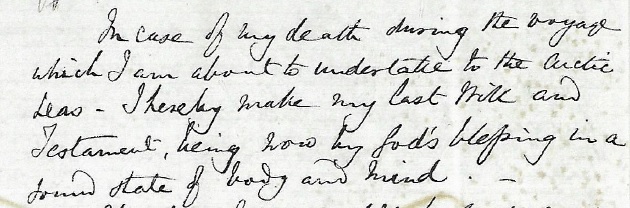 In case of my death during the voyage
which I am about to undertake to the Arctic
Seas - I hereby make my last Will and
Testament, being now by God's blessing in a
sound state of body and mind. -